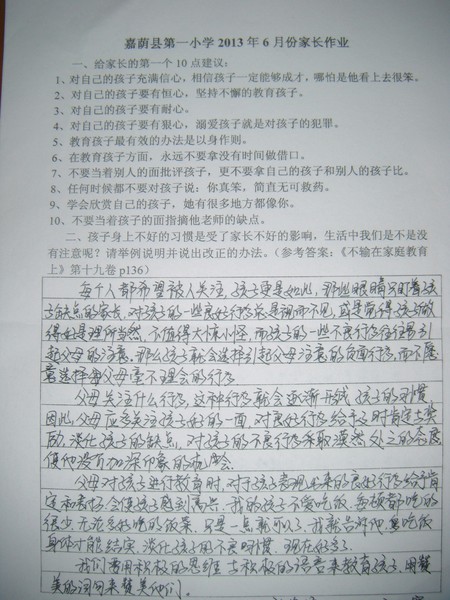 嘉荫县第一小学 2013 年 6 月份家长作业
一、给家长的第一个 10 点建议:
1、对自己的孩子充满信心，相信孩子一定能够成才，哪怕是他看上去很笨。
2、对自己的孩子要有恒心，坚持不懈的教育孩子。
3、对自己的孩子要有耐心。
4、对自己的孩子要有狠心，溺爱孩子就是对孩子的犯罪。
5、教育孩子最有效的办法是以身作则。
6、在教育孩子方面，永远不要拿没有时间做借口。
7、不要当着别人的面批评孩子，更不要拿自己的孩子和别人的孩子比。
8、任何时候都不要对孩子说：你真笨，简直无可救药。
9、学会欣赏自己的孩子，她有很多地方都像你。
10、不要当着孩子的面指摘他老师的缺点。
二、孩子身上不好的习惯是受了家长不好的影响，生活中我们是不是没
有注意呢？请举例说明并说出改正的办法。（参考答案：《不输在家庭教育
上》第十九卷 p136）
每个人都希望被人关注，孩子更是如此，那些眼睛只盯着孩
子缺点的家长，对孩子的一些良好行为总是视而不见，或是觉得孩子做
得好是理所当然，不值得大惊小怪，而孩子的一些不良行为往往易引
起父母的注意，那么孩子就会选择引起父母注意的负面行为，而不愿
意选择父母毫不理会的行为
父母关注什么行为，这种行为就会逐渐形成孩子的习惯，
因此，父母应多关注孩子好的一面，对良好行为给予及时肯定与奖
励，淡化孩子的缺点，对孩子的不良行为采取漠然处之的态度
使他没有加深印象的机会。
父母对孩子进行教育时，对于孩子表现出来的良好行为给予肯
定和表扬，会使孩子感到高兴，我的孩子不爱吃饭，每顿都吃的
很少，无论多好吃的饭菜，只是一点就可以了，我就告诉他多吃饭
身体才能结实，淡化孩子的不良习惯，现在好多了。
我们要用积极的思维与积极的语言来教育孩子，用赞
美的词句来赞美他们。